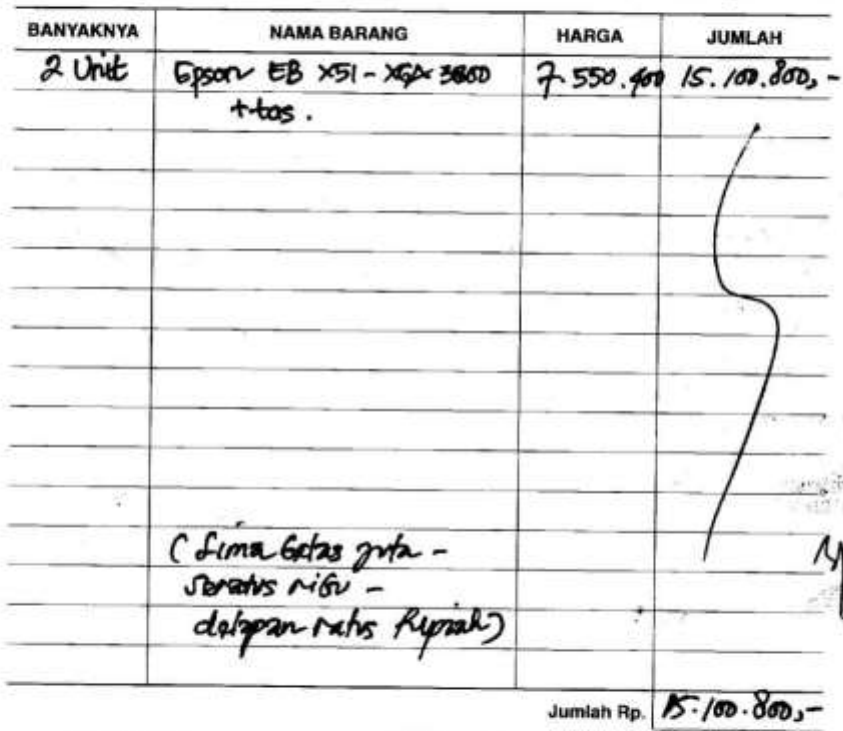 BANYAKNYA NAMA BARANG HARGA JUMLAH
2 Unit Epson EB X51 - XGA 3800 7.550.400 15.100.800,-
+ tas.
( Lima belas juta -
seratus ribu -
delapan ratus Rupiah)
Jumlah Rp. 15.100.800,-